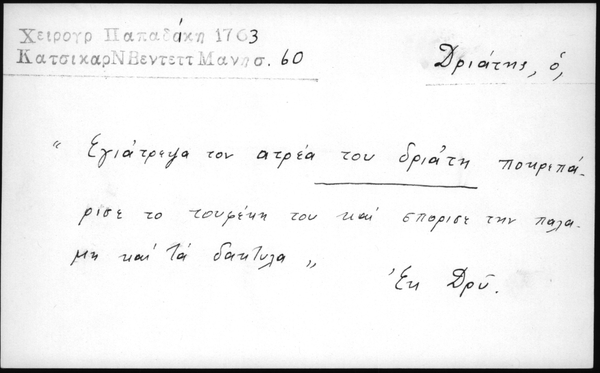 Χειρογρ Παπαδάκη 1763
ΚατσικαρΝΒεντεττΜανησ. 60
Δριάτης, ὁ,
“ Εγιάτρεψα τον ατρέα του δριάτη πουρεπά-
ρισε το τουφέκη του καί σπορισε την παλα-
μη καί τά δακτυλα „
Ἐκ Δρῦ.